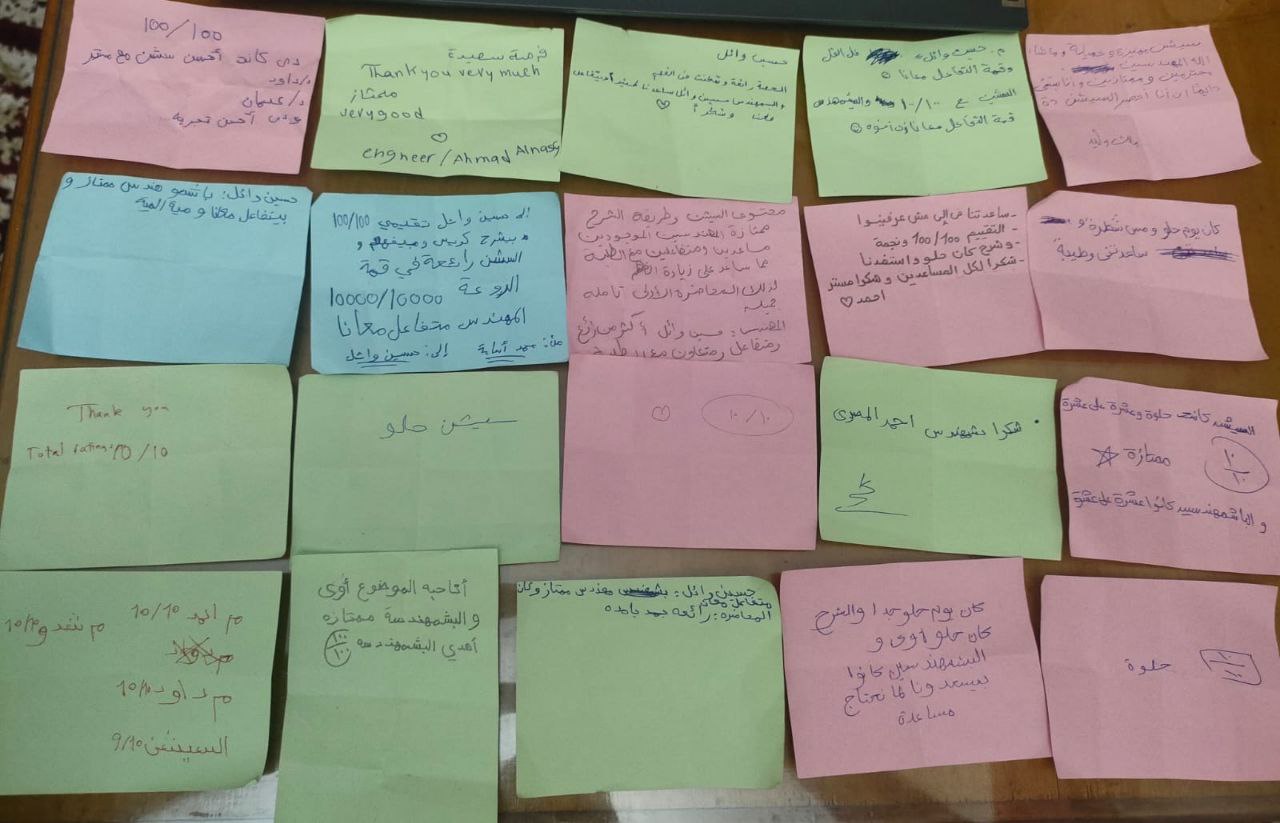 100/100
دى كانت أحسن سشن مع مستر
د/داود
د/عثمان
ودى أحسن تجربه
فرصة سعيدة
Thank you very much
ممتاز
very good
♡
engneer/Ahmad Almasry
حسين وائل
رائعة وتمكنت من الفهم
والمهندس حسين وائل ساعدنا
وشكراً
♡
م. حسين وائل:
وقمة التفاعل معانا ☺
السشن 10/10 والبشمهندس
قمة التفاعل معانا ☺
سيشن مفيدة وجميلة
المهندسين
محترمين وممتازين
دايمًا ان أنا أحضر السيشن دة
حسين وائل: باشمهندس ممتاز و
بيتفاعل معانا و مية المية
إلى حسين وائل تقييمي 100/100
بيشرح كويس وبيفهم و
السشن رائعة في قمة
الروعة
10000/10000
المهندس متفاعل معانا
من: إلى: حسين وائل
محتوى السيشن وطريقة الشرح
ممتازة المهندسين الموجودين
مساعدين ومتفاعلين مع الطلبة
مما ساعد على زيادة الفهم
لذلك المحاضرة الأولى
جميلة
المهندس: حسين وائل أكثر من رائع
ومتفاعل ومتعاون مع
- ساعدتنا في إلى مش عرفينوا
- التقييم 100/100 ونجمة
- وشرح كان حلو واستفدنا
- شكرا لكل المساعدين وشكرا مستر
احمد ♡
كان يوم حلو و مس
ساعدتنى وطيبة
Thank you
Total rating 10/10
سيشن حلو
♡ ١٠/١٠
شكرا بشمهندس احمد المصرى
السيشن كانت حلوة وعشرة على عشرة
ممتازة ☆ ١٠/١٠
و الباشمهندسين كانوا عشرة على عشرة
م احمد 10/10
م داود 10/10
السيشن 9/10
الموضوع أوى
و البشمهندسة ممتازه
البشمهندسة ١٠٠/١٠٠
حسين وائل: مهندس ممتاز وكان
متفاعل معانا
المحاضرة: رائعه
كان يوم حلو جدا والشرح
كان حلو اوى و
البشمهندسين كانوا
بيسعدونا لما نحتاج
مساعدة
حلوة